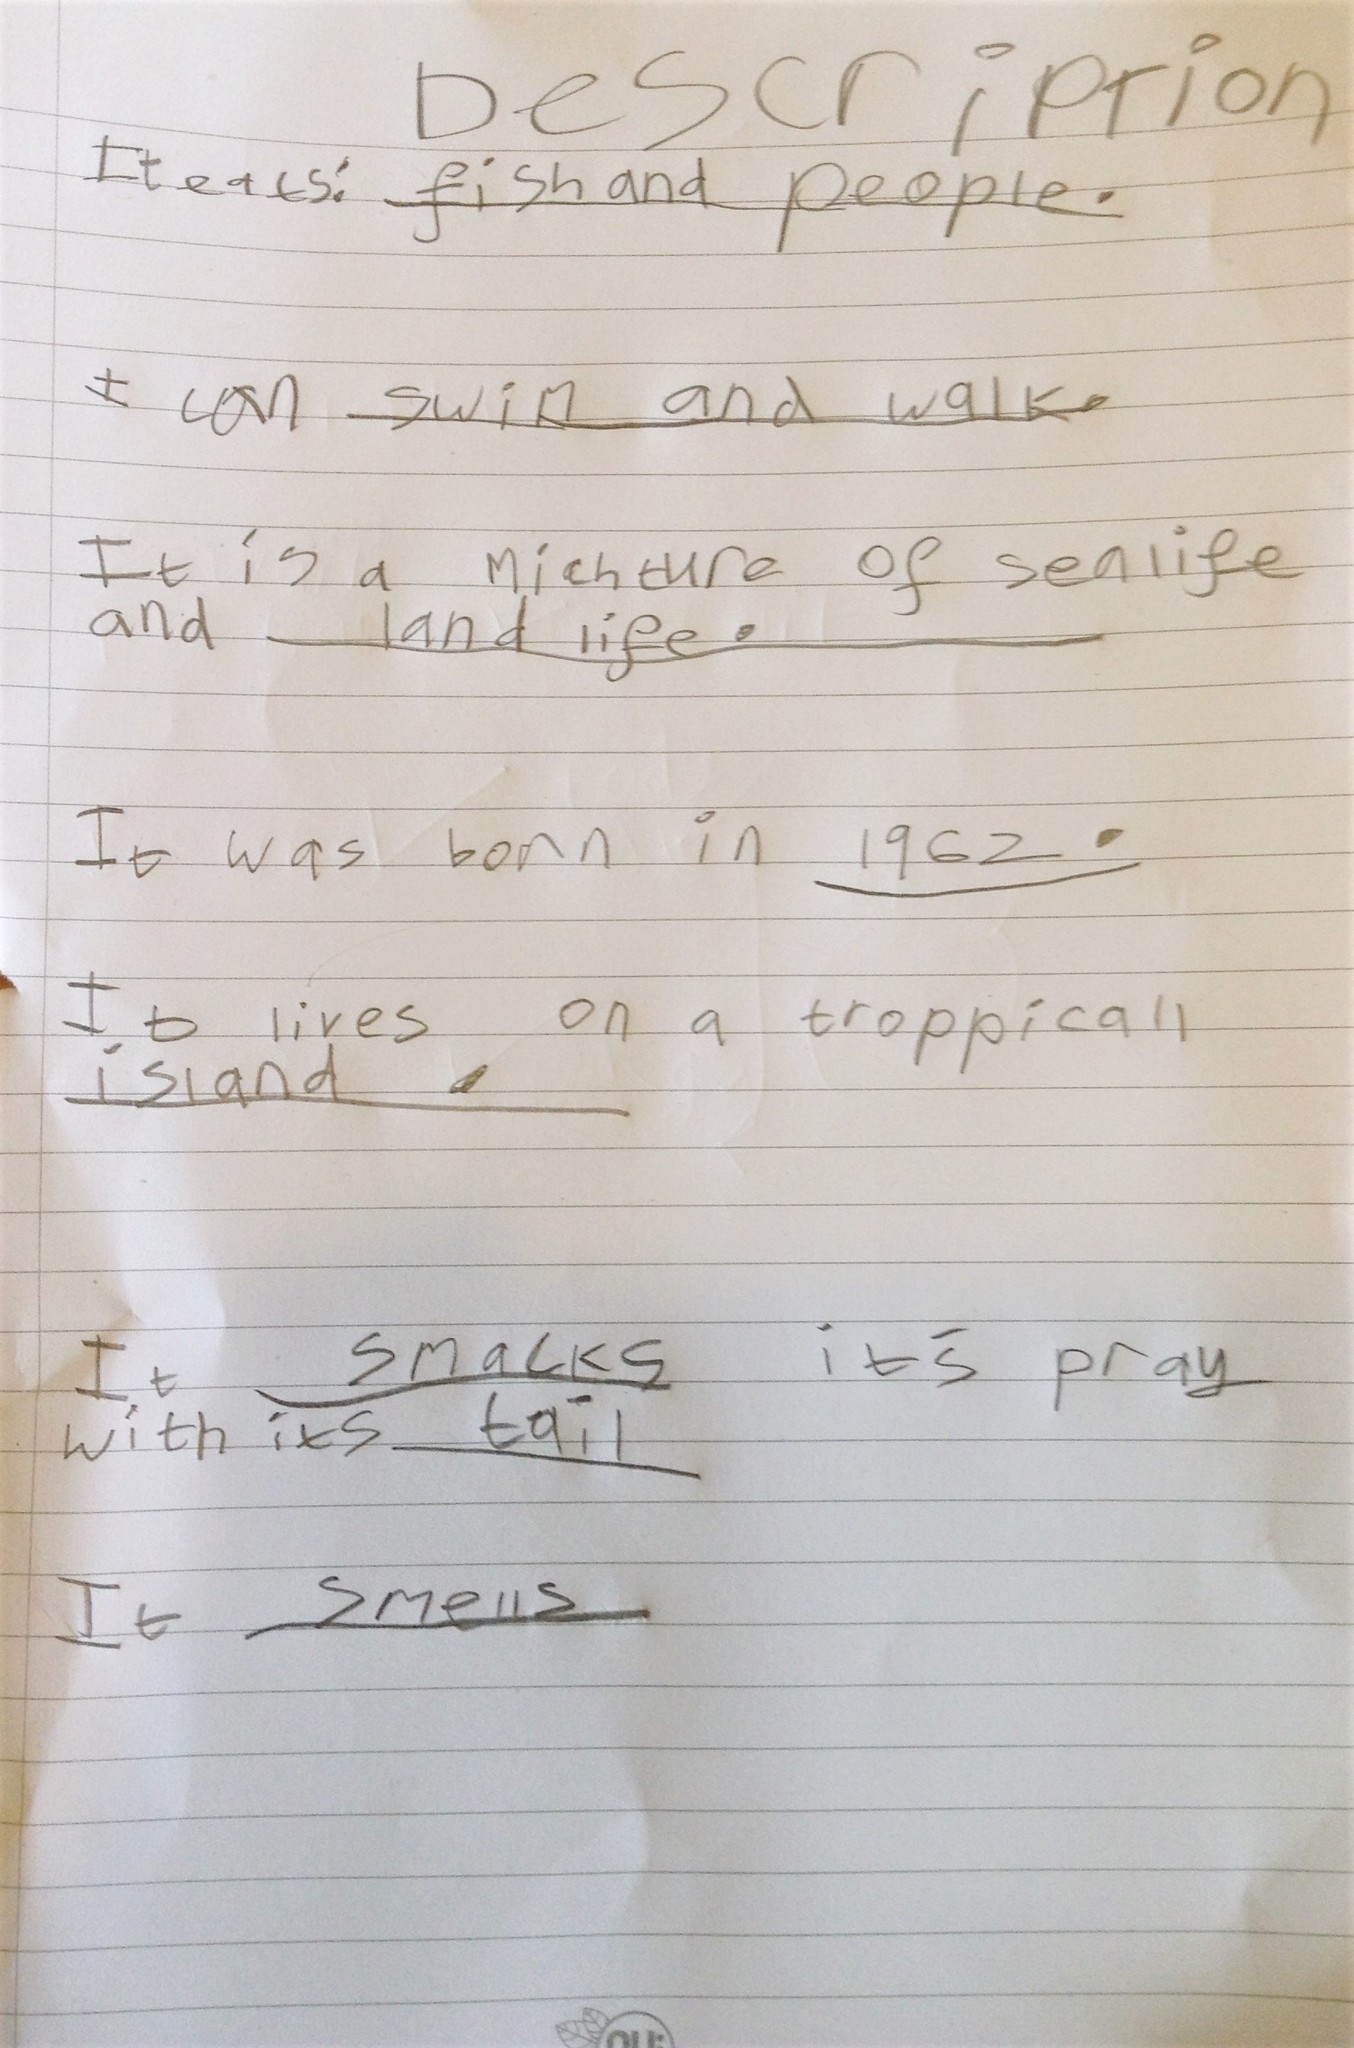 Description
It eats: fish and people.
It can swim and walk.
It is a michture of sealife
and land life.
It was born in 1962.
It lives on a troppicall
island.
It smacks it's pray
with its tail
It smells